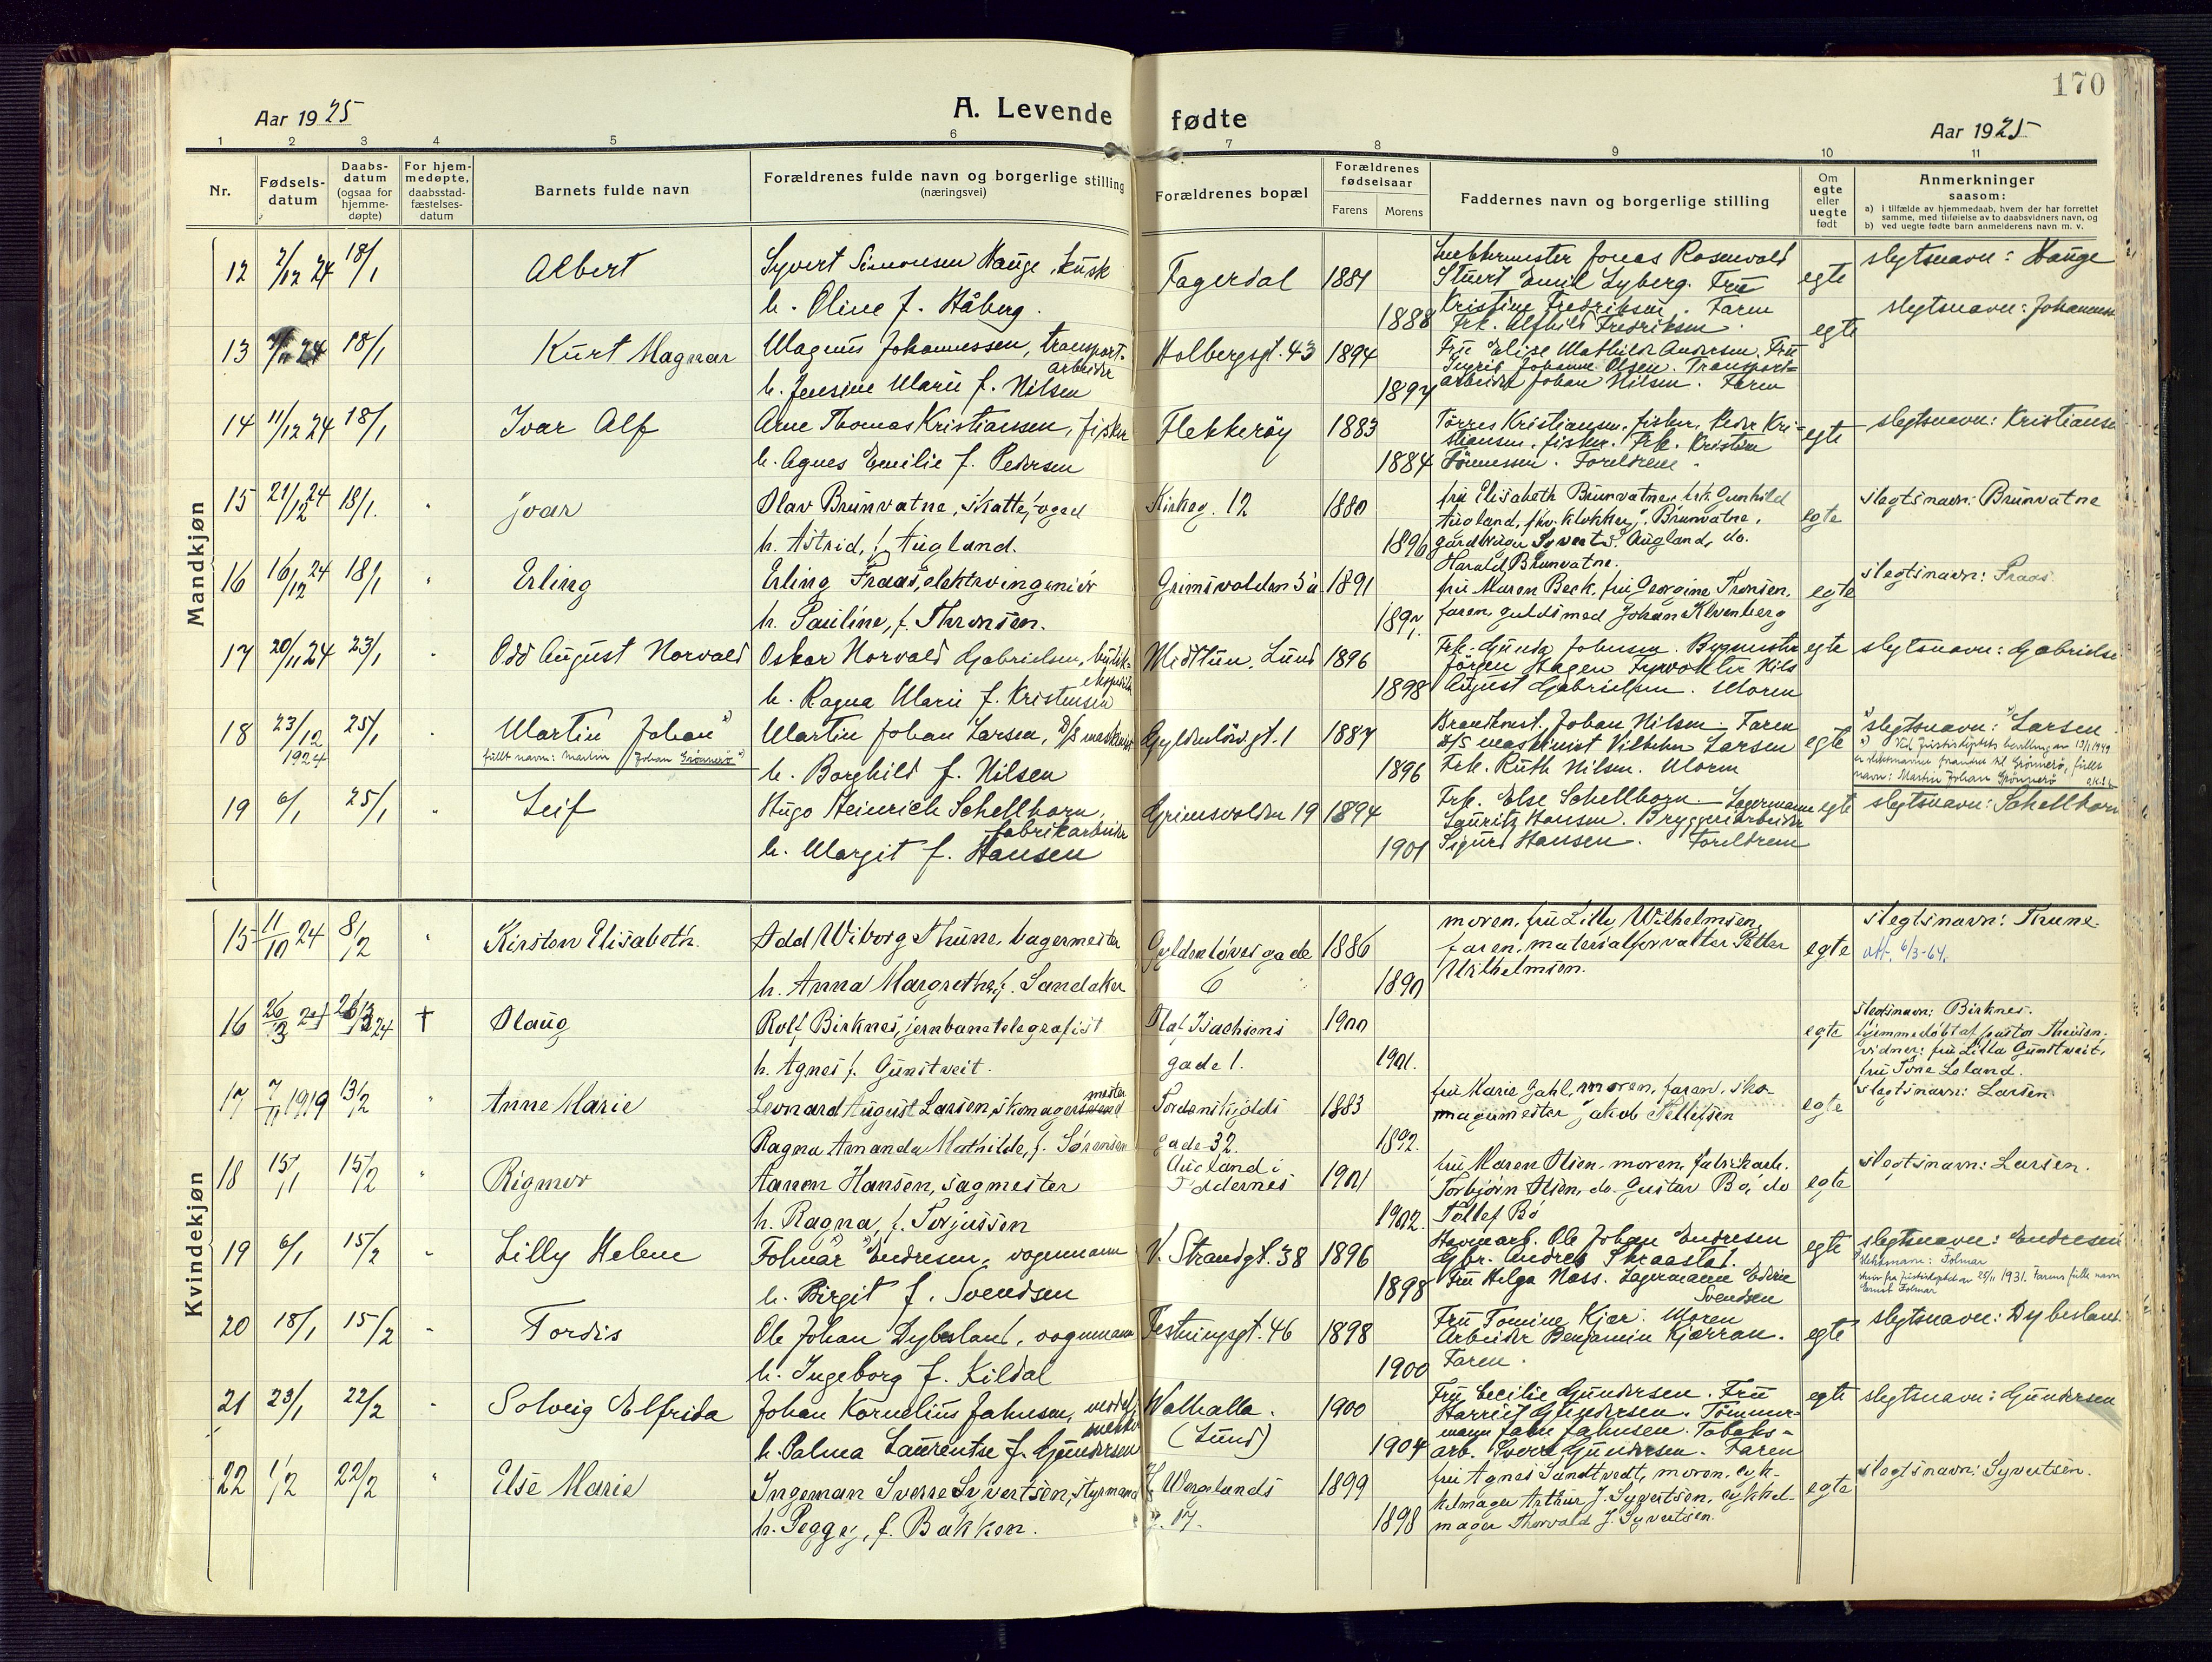 170
Aar 1925
A. Levende fødte
Aar 1925
1 2 3 4 5 6 7 8 9 10 11
Nr.
Fødsels-
datum
Daabs-
datum
(ogsaa for
hjemme-
døpte)
For hjem-
medøpte,
daabsstad-
fæstelses-
datum
Barnets fulde navn
Forældrenes fulde navn og borgerlige stilling
(næringsvei)
Forældrenes bopæl
Forældrenes
fødselsaar
Farens Morens
Faddernes navn og borgerlige stilling
Om
egte
eller
uegte
født
Anmerkninger
saasom:
a) i tilfælde av hjemmedaab, hvem der har forrettet
samme, med tilføielse av to daabsvidners navn, og
b) ved uegte fødte barn anmelderens navn m. v.
Mandkjøn
12 2/12 24 18/1 Albert
Syvert Simonsen Hauge, kusk
h. Oline f. Håberg.
Fagerdal 1881
1888
Jonas Rosenvold
Stuert Emil Syberg. Fru
Kristine Fredriksen. Faren
Frk. Alfhild Fredriksen.
egte
slegtsnavn: Hauge
13 24 18/1 Kurt Magnar
Magnus Johannessen, transport-
arbeider
h. Jensine Marie f. Nilsen
Holbergsgt. 43 1894
1894
Fru Elise Mathilde Andersen. Fru
Ingrid Johanne Olsen. Transport-
arbeider Johan Nilsen. Faren
egte
slegtsnavn: Johannessen
14 11/12 24 18/1 Ivar Alf
Arne Thomas Kristiansen, fisker
h. Agnes Emilie f. Pedersen
Flekkerøy 1883
1884
Torres Kristiansen, fisker, Peder Kri-
stiansen, fisker. Frk. Kristine
Tønnessen. Foreldrene.
egte
slegtsnavn: Kristiansen
15 21/12 24 18/1. Ivar
Olav Brunvatne, skattefoged
h. Astrid, f. Augland.
Kirkeg. 12 1880
1896
fru Elisabeth Brunvatne, frk. Gunhild
Augland, fhv. klokker J. Brunvatne,
gardbruger Syvert S. Augland, do.
Harald Brunvatne.
egte
slegtsnavn: Brunvatne
16 16/12 24 18/1 Erling
Erling Fraas, elektroingeniør
h. Pauline, f. Thronsen.
Grimsvolden 5a 1891
fru Maren Beck, fru Georgine Tronsen,
faren, guldsmed Johan Klevenberg
egte
slegtsnavn: Fraas
17 20/11 24 23/1 Odd August Norvald
Oskar Norvald Gabrielsen, butik-
ekspeditør
h. Ragna Marie f. Kristensen
Midtun, Lund 1896
1898
Frk. Gunda Johnsen. Bygmester
Jörgen Hagen Nils
August Gabrielsen. Moren
egte
slegtsnavn: Gabrielsen
18 23/12 1924 25/1 Martin Johan x)
fullt navn: Martin Johan Grønnerø x)
Martin Johan Larsen, D/S maskinist
h. Borghild f. Nilsen
Gyldenløvsgt. 1 1887
1896
Brandkonst. Johan Nilsen. Faren
D/S maskinist Vilhelm Larsen
Frk. Ruth Nilsen. Moren
egte
slegtsnavn: Larsen
x) Ved Justisdeptets bevilling av 13/1 1949
er slektsnavnet forandret til Grønnerø, fullt
navn: Martin Johan Grønnerø
19 6/1 25/1 Leif
Hugo Heinrich Schellhorn,
fabrikarbeider
h. Margit f. Hansen
Grimsvolden 19 1894
1901
Frk. Else Schellhorn. Lagermann
Lauritz Hansen. Bryggeriarbeider
Sigurd Hansen. Foreldrene
egte
slegtsnavn: Schellhorn
Kvindekjøn
15 11/10 24 8/2 Kirsten Elisabeth.
Odd Wiborg Thune, bagermester
h. Anna Margrethe, f. Sandaker
Gyldenløves gade
6
1886
1890
moren, fru Lilly Wilhelmsen,
faren, materialforvalter Petter
Wilhelmsen.
egte
slegtsnavn: Thune
att. 6/3-64.
16 26/3 24 24 † Olaug
Rolf Birknes, jernbanetelegrafist
h. Agnes f. Gunstveit.
Olaf Isachsens
gade 1.
1900
1901.
egte
slegtsnavn: Birknes.
hjemmedøbt af Gustav Theisen.
vidner: fru Lilla Gunstveit,
fru Tone Leland.
17 7/11 1919 13/2 Anne Marie
Leonard August Larsen, skomagersvend
mester
Ragna Amanda Mathilde, f. Sørensen
Tordenskjolds
gade 32.
1883
1892.
fru Marie Gahl, moren, faren, sko-
magermester Jakob Tellefsen
egte
slegtsnavn: Larsen
18 15/1 15/2 Rigmor
Aanen Hansen, sagmester
h. Ragna, f. Torjussen
Augland i
Oddernes
1901
1902.
fru Maren Olsen, moren, fabrikarb.
Torbjørn Olsen, do. Gustav Bø, do
Tellef Bø
egte
slegtsnavn: Larsen.
19 6/1 15/2 Lilly Helene
Folmar x) Endresen, vognmann
h. Birgit f. Svendsen
V. Strandgt. 38 1896
1898
Havnearb. Ole Johan Endresen
Gbr. Andreas Skraastad.
Fru Helga Næss. Lagermann Edvin
Svendsen
egte
slegtsnavn: Endresen
slektsnavn: Folmar
skriv fra Justisdeptet av 25/11 1931. Farens fulle navn
Ernst Folmar
20 18/1 15/2 Tordis
Ole Johan Dybesland, vognmann
h. Ingeborg f. Kildal
Festningsgt. 46 1898
1900
Fru Tomine Kjær. Moren
Arbeider Benjamin Kjærran.
Faren.
egte
slegtsnavn: Dybesland
21 23/1 22/2 Solveig Elfrida
Johan Kornelius Jahnsen,
h. Palma Laurentse f. Gundersen
Walhalla.
(Lund)
1900
1904
Fru Cecilie Gundersen. Fru
Harriet Gundersen. Tømmer-
mann Jahn Jahnsen. Tobaks-
arb. Sverre Gundersen. Faren
egte
slegtsnavn: Gundersen
22 1/2 22/2 Else Marie
Ingeman Sverre Syvertsen, styrmand
h. Peggy, f. Bakken.
H. Wergelands
g. 17.
1899
1898
fru Agnes Sundtvedt, moren, cyk-
kelmager Arthur J. Syvertsen, cykkel-
mager Thorvald J. Syvertsen.
egte
slegtsnavn: Syvertsen.